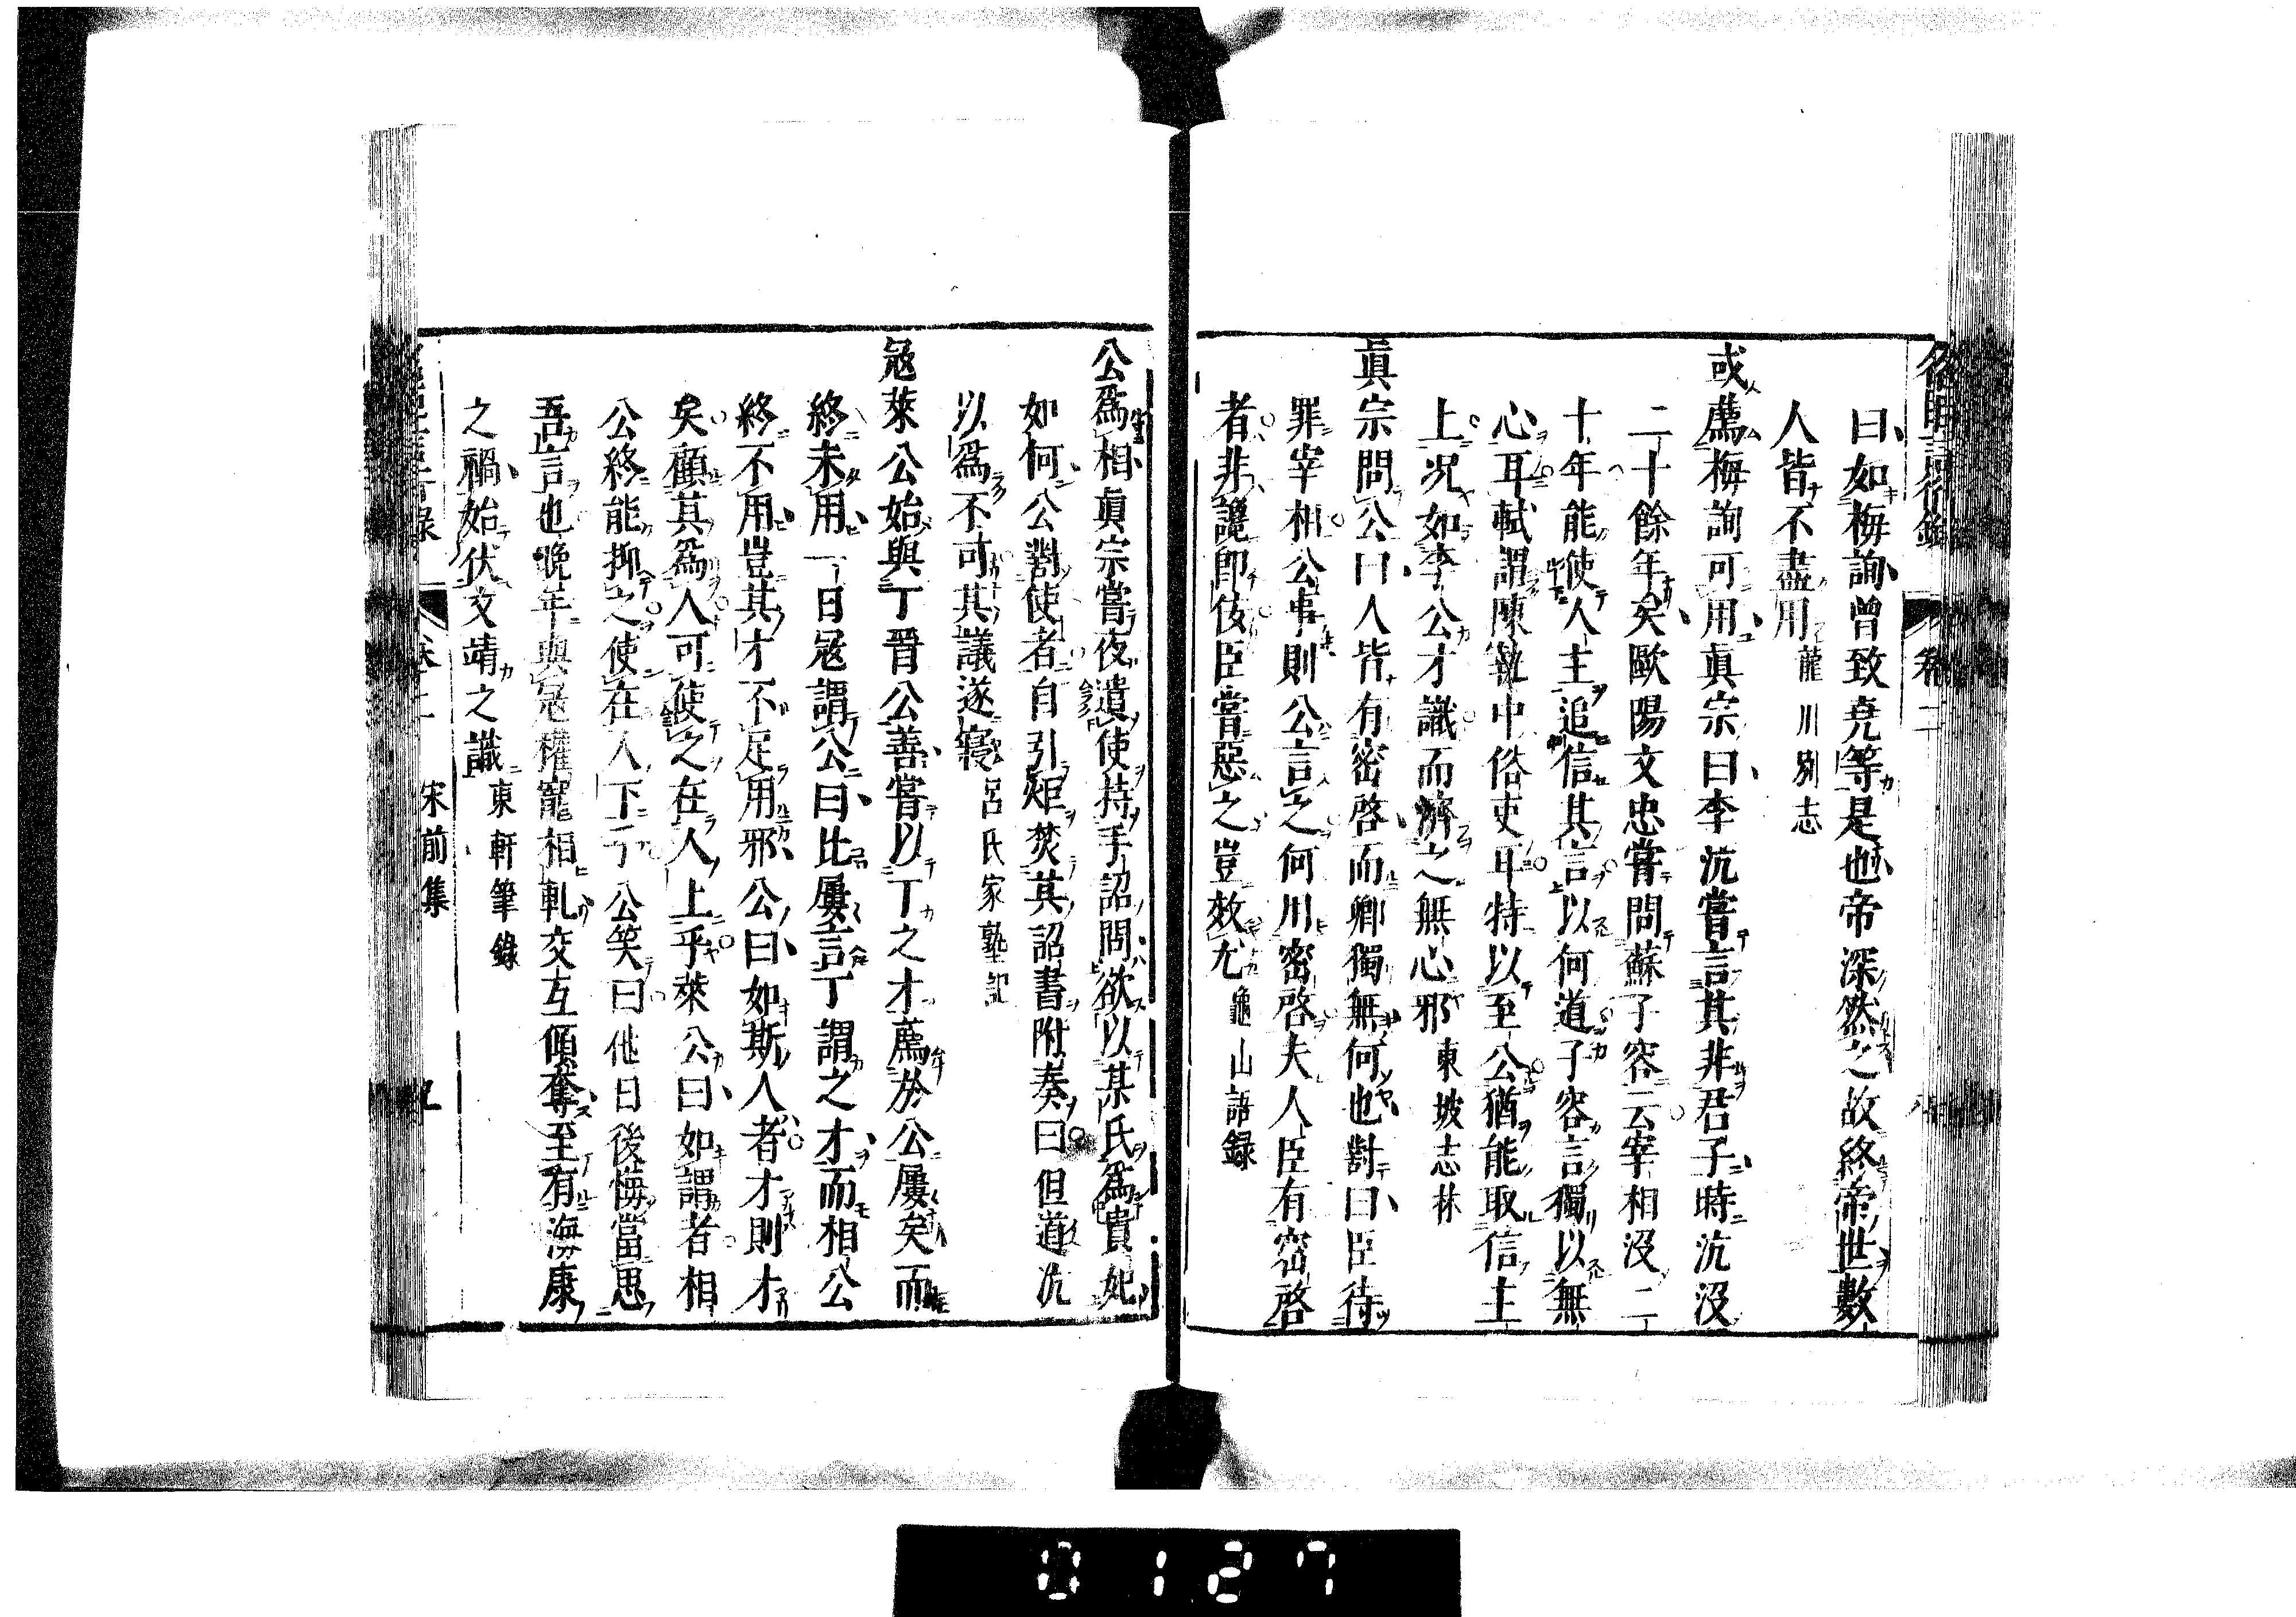 曰如梅詢曾致堯等是也帝深然之故終帝世數
人皆不盡用龍川別志
或薦梅詢可用眞宗曰李沆嘗言其非君子時沆沒
二十餘年矣歐陽文忠嘗問蘇子容云宰相沒二
十年能使人主追信其言以何道子容言獨以無
心耳軾謂陳執中俗吏耳特以至公猶能取信主
上况如李公才識而濟之無心邪東坡志林
眞宗問公曰人皆有密啓而卿獨無何也對曰臣待
罪宰相公事則公言之何用密啓夫人臣有密啓
者非讒即佞臣嘗惡之豈效尤龜山語録
公爲相眞宗嘗夜遣使持手詔問欲以某氏爲貴妃
如何公對使者自引炬焚其詔書附奏曰但道沆
以爲不可其議遂寢呂氏家塾記
冦萊公始與丁晉公善嘗以丁之才薦於公屢矣而
終未用一日冦謂公曰比屢言丁謂之才而相公
終不用豈其才不足用邪公曰如斯人者才則才
矣顧其爲人可使之在人上乎萊公曰如謂者相
公終能抑之使在人下乎公笑曰他日後悔當思
吾言也晚年與冦權寵相軋交互傾奪至有海康
之禍始伏文靖之識東軒筆錄
卷二
宋前集
0127